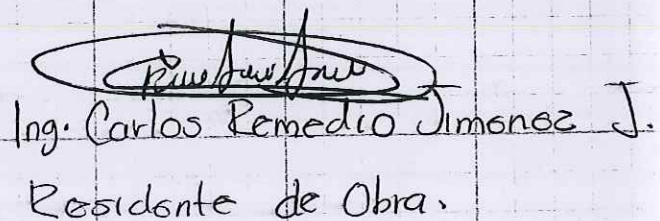 Ing. Carlos Remedio Jimenez J.
Residente de Obra.